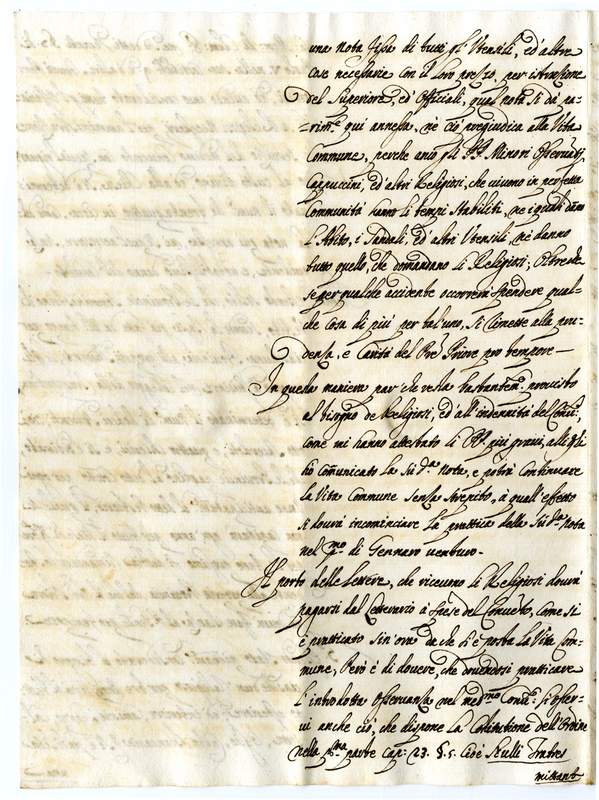 una nota fissa di tutti gl'Utensili, ed'altre
cose necessarie con il loro prezzo, per istruzione
del Superiore, ed'Officiali, qual nota si dà pa-
=rim.te qui annessa, nè ciò pregiudica alla Vita
Commune, perche anco gli PP. Minori Osservanti
Cappuccini, ed'altri Religiosi, che vivono in perfetta
Communità hanno li tempi stabiliti, ne i quali dano
l'Abito, i Sandali, ed'altri Utensili, nè danno
tutto quello, che domandano li Religiosi; Oltre che
se per qualche accidente occorrerà spendere qual-
che cosa di più per tal'uno, si rimette alla pru-
denza, e Carità del Pre' Priore pro tempore—
In questa maniera par' che resta bastantem.te provisto
al bisogno de Religiosi, ed'all'indennità del Conv.to,
come mi hanno attestato li PP. più gravi, alli quali
hò comunicato la sud.a Nota, e potrà continuare
la Vita Commune senza strepito, à quall'effetto
si dovrà incominciare la prattica della sud.a Nota
nel p.mo di Gennaro venturo.
Il porto delle Lettere, che ricevono li Religiosi dovrà
pagarsi dal à spese del Convento, come si
è pratticato sin'ora da che si è posta la Vita Com-
mune, Però è di dovere, che dovendosi pratticare
l'introdotta Osservanza nel med.mo Conv.to si osser-
vi anche ciò, che dispone la Costitutione dell'Ordine
nella p.ma parte Cap: 23. §. 5. cioè Nulli Fratres
mittant